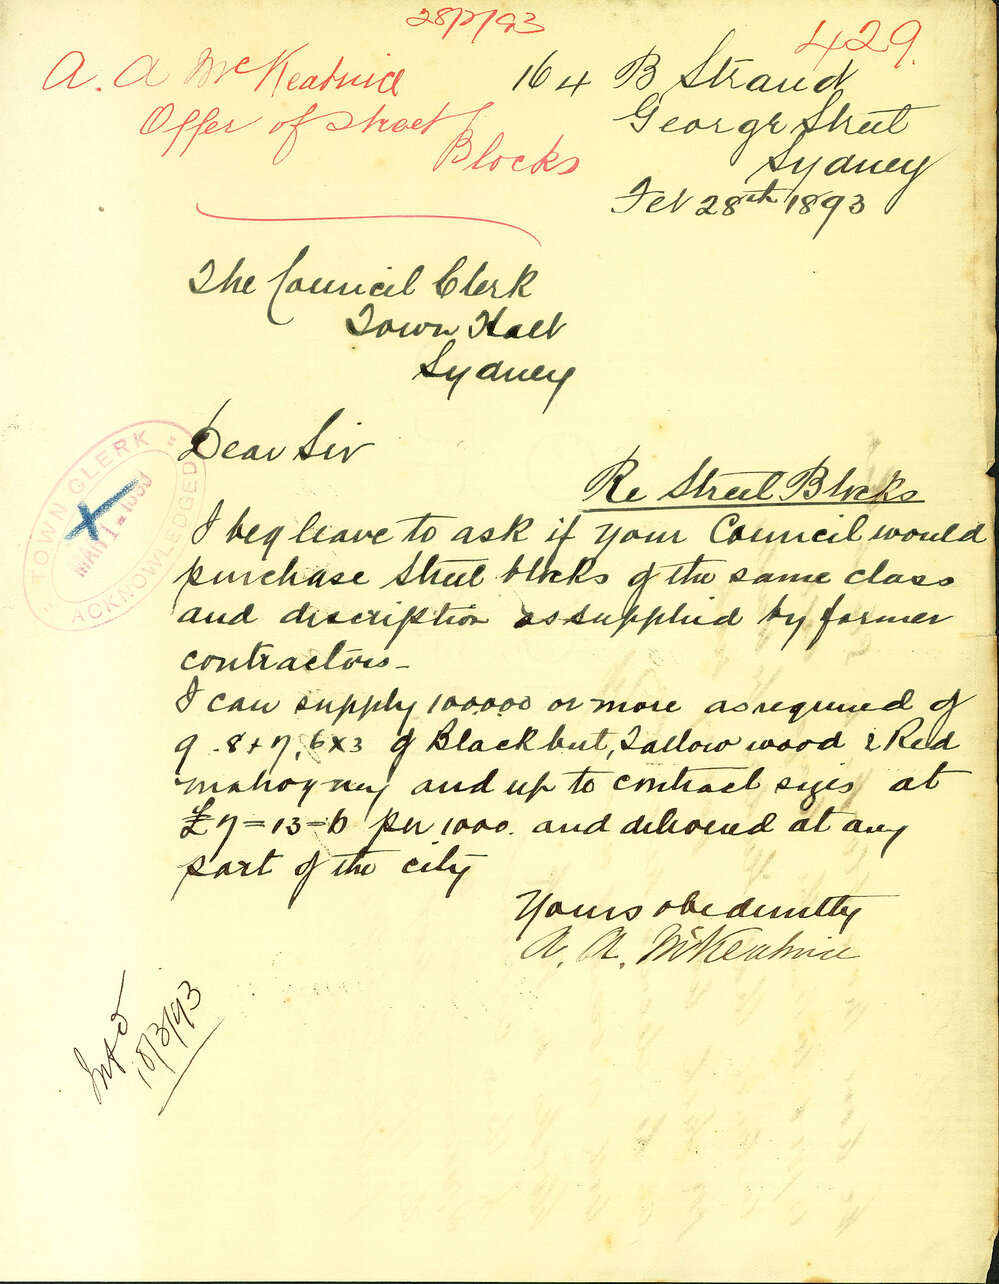 28/2/93
429.
A. A McKeatnie
Offer of street
Blocks
164 B Strand
George Street
Sydney
Feb 28th 1893
The Council Clerk
Town Hall
Sydney
Dear Sir
Re Street Blocks
TOWN CLERK
MAR 1 - 1893
ACKNOWLEDGED
I beg leave to ask if your Council would
purchase Street blocks of the same class
and discription as supplied by former
contractors -
I can supply 100000 or more as required of
9 . 8 + 7, 6 x 3 of Blackbut, Tallow wood & Red
mahogney and up to contract sizes at
£7 = 13 = 6 per 1000. and delivered at any
part of the city
Yours obediently
A. A. McKeatnie
Infd
18/3/93